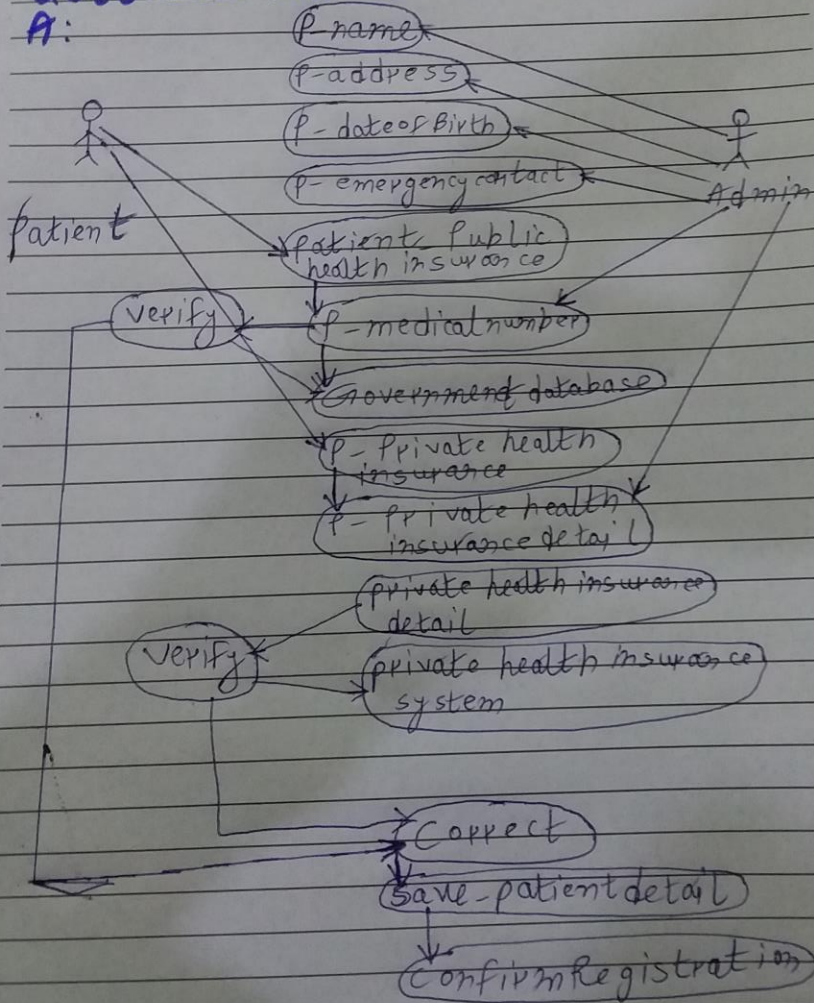 A:
P-name
P-address
P-dateofBirth
P-emergencycontact
Admin
Patient
Patient-Public
health insurance
Verify
P-medicalnumber
Government database
P-Private health
insurance
P-Private health
insurance detail
private health insurance
detail
Verify
private health insurance
system
Correct
Save-patientdetail
ConfirmRegistration